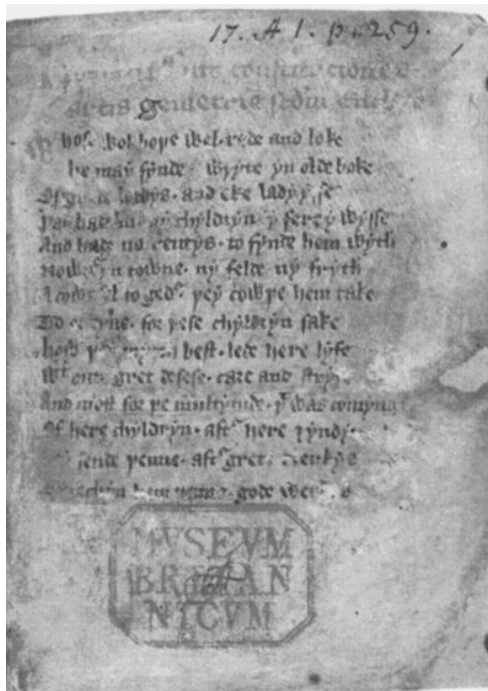 17. A I. p. 259.
constituciones
artis gemetrie scdm
Whose wol boþe wel rede and loke
he may fynde wryte yn olde boke
Of lordys. and eke ladyysse
þat hade mony chyldryn y fere y wysse
And hade no rentys. to fynde hem wyth
Nowþer yn towne. ny felde ny fryth
A cownsel to geder þey cowþe hem take
To ordeyne. for þese chyldryn sake
how þey best. lede here lyfe
Wt oute gret desese. care and stryfe
And most for þe multytude. þt was comynge
Of here chyldryn. aft here
sende þenne. aft grete clerkys
techyn hem þenne. gode werkys
MVSEVM
BRITAN
NICVM